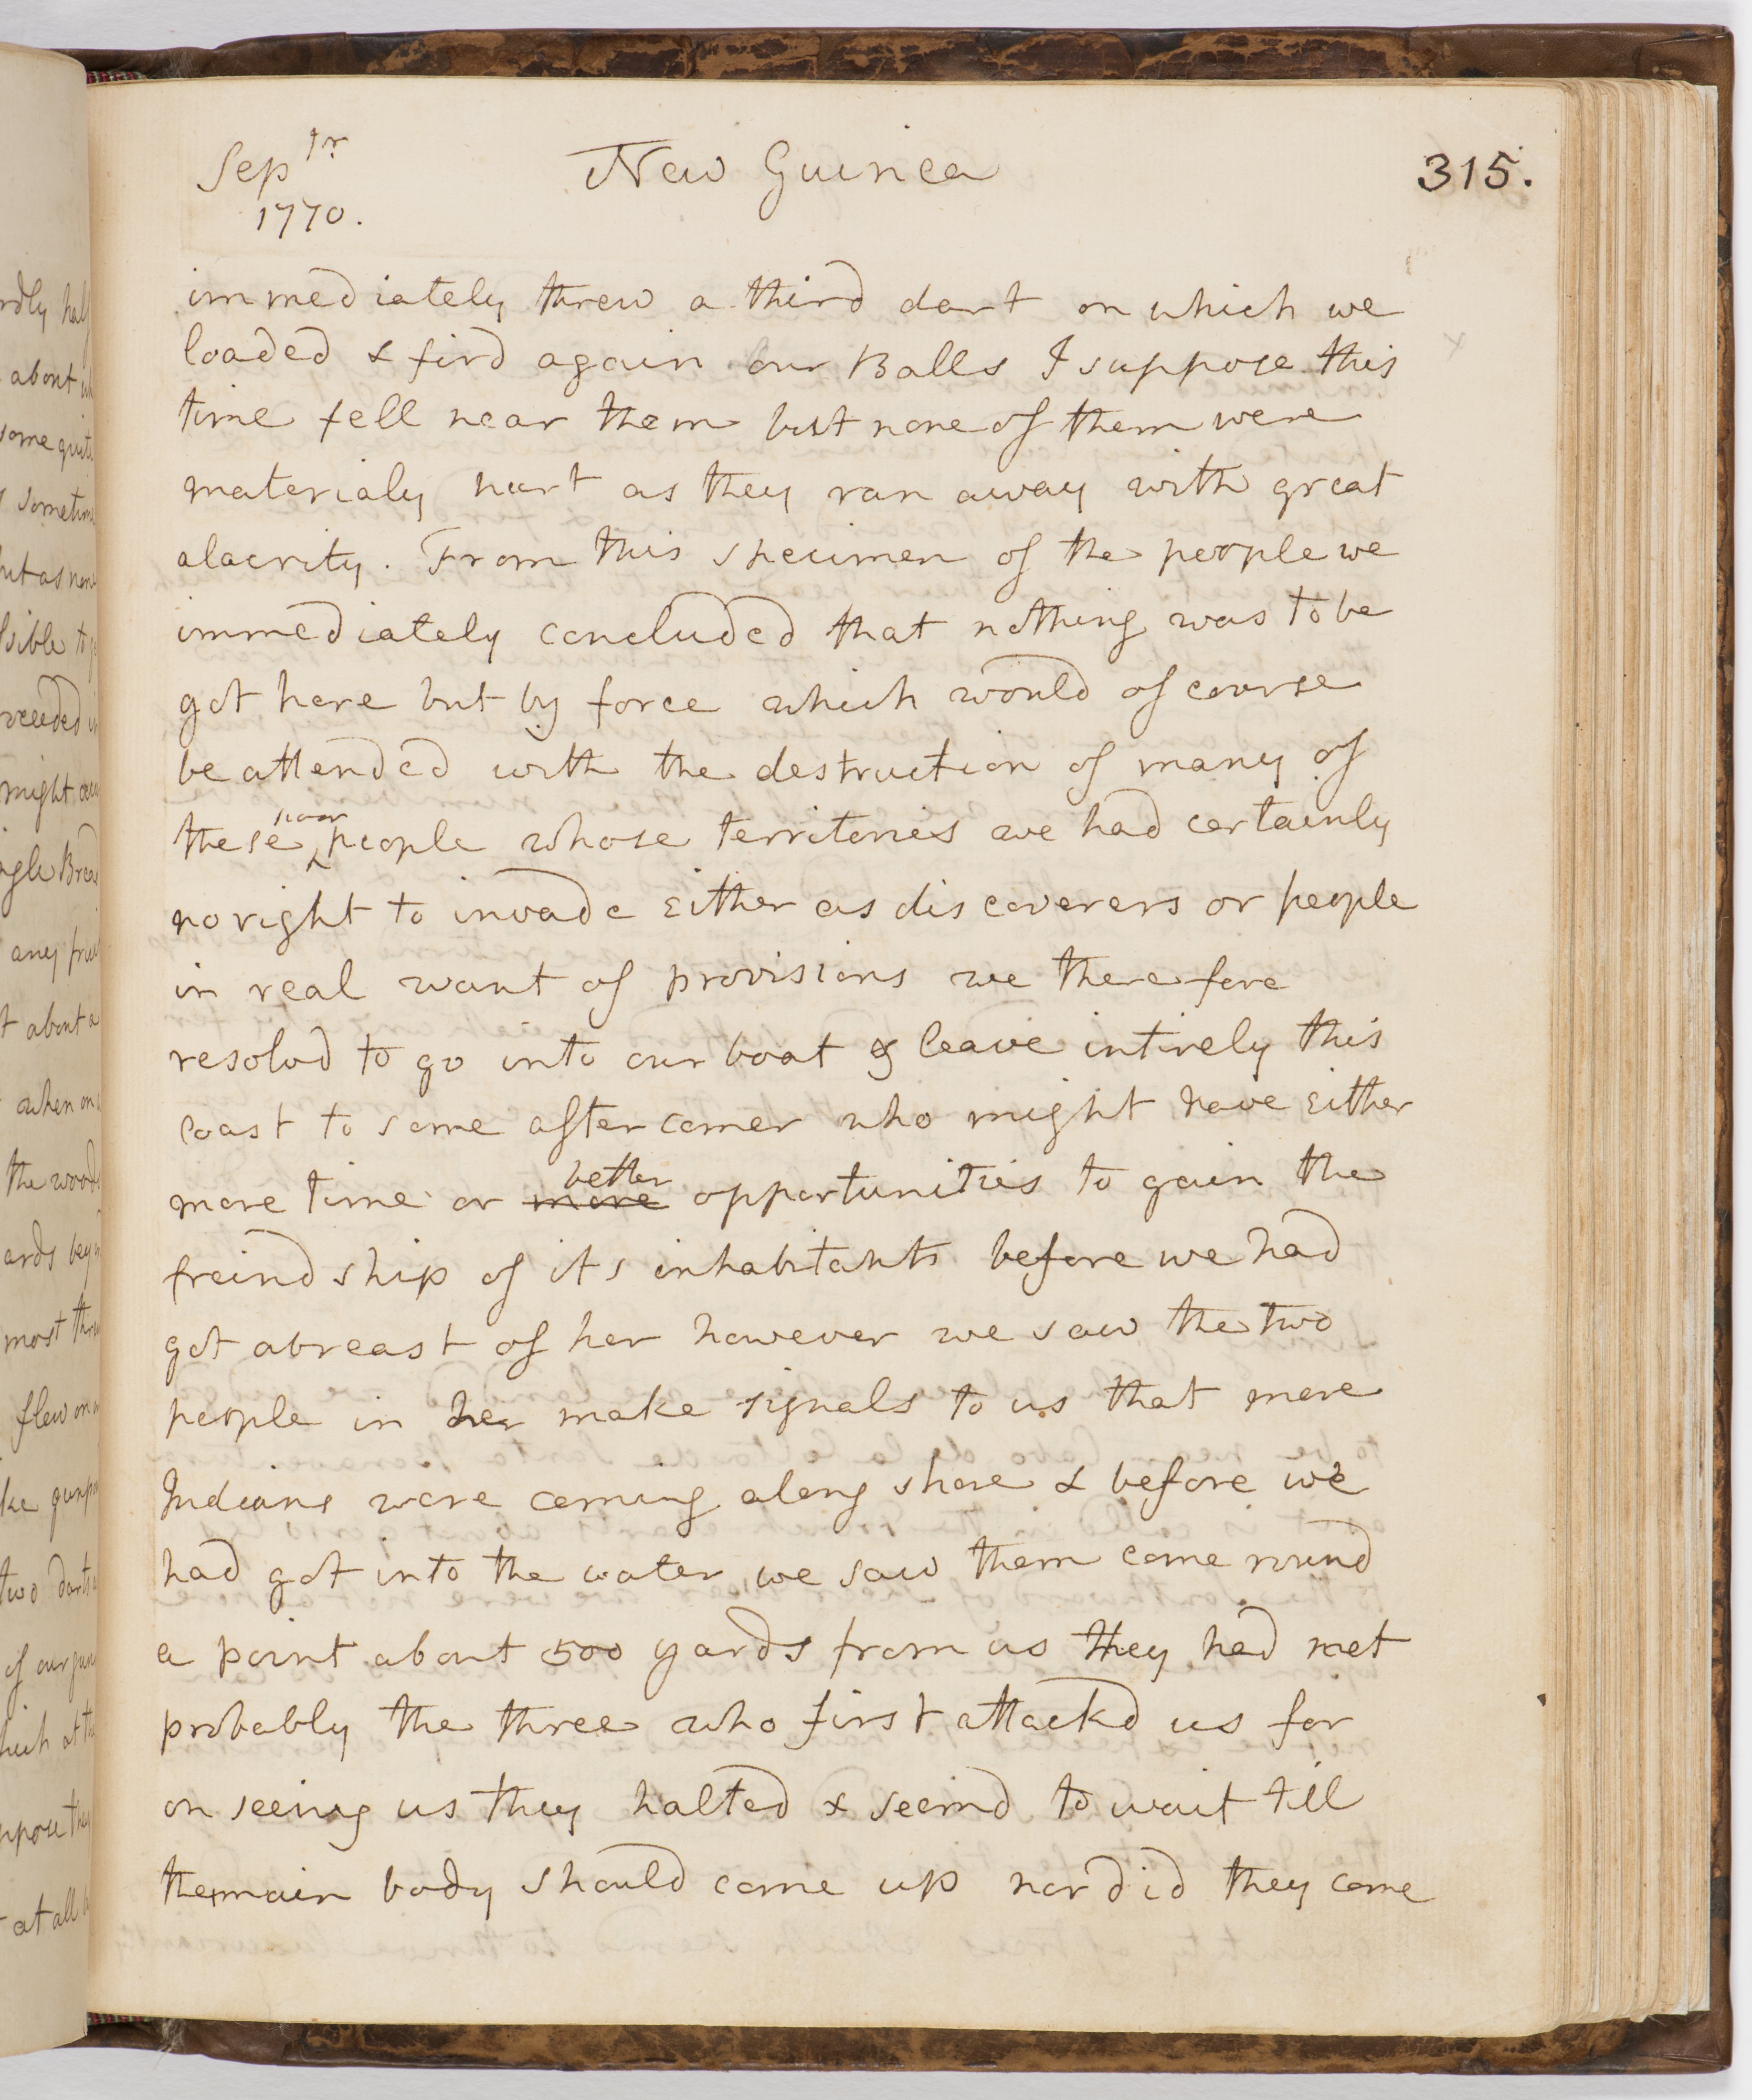 Sep^tr
1770.
New Guinea
315.
immediately threw a third dart on which we
loaded & fird again our Balls I suppose this
time fell near them but none of them were
materialy hurt as they ran away with great
alacrity. From this specimen of the people we
immediately concluded that nothing was to be
got here but by force which would of course
be attended with the destruction of many of
these poor people whose territories we had certainly
no right to invade either as discoverers or people
in real want of provisions we therefore
resolvd to go into our boat & leave intirely this
coast to some after comer who might have either
more time or more better opportunities to gain the
freindship of its inhabitants before we had
got abreast of her however we saw the two
people in her make signals to us that more
Indians were coming along shore & before we
had got into the water we saw them come round
a point about 500 yards from us they had met
probably the three who first attackd us for
on seeing us they halted & seemd to wait till
the main body should come up nor did they come
rdly half
about
some quite
sometim
but as none
sible to
ceeded in
might
ngle Bread
any fruit
t about a
when on
the woods
ards bey
most thr
flew on
ke gunpo
two darts
of our gun
hich at th
ppose they
at all